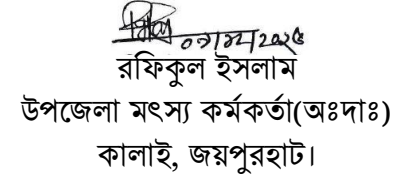 রফিকুল ইসলাম
উপজেলা মৎস্য কর্মকর্তা(অঃদাঃ)
কালাই, জয়পুরহাট।